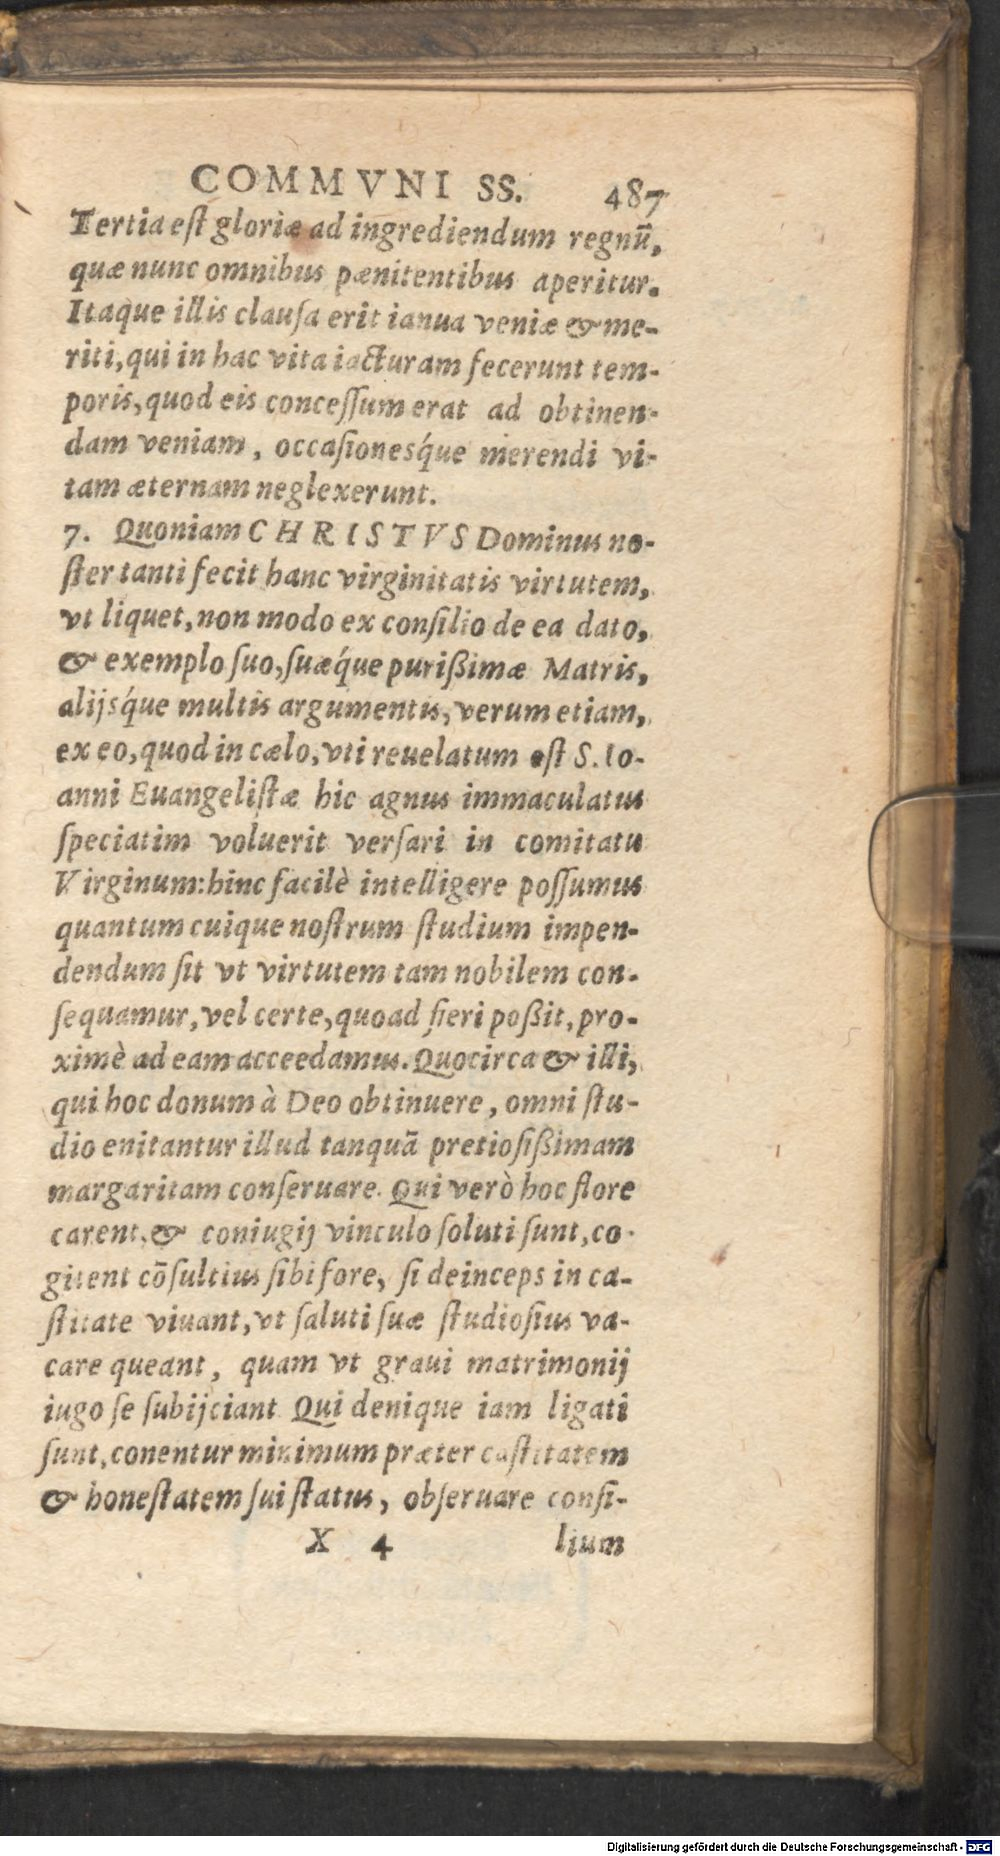 COMMVNI SS. 487
Tertia eſt gloriæ ad ingrediendum regnū,
quæ nunc omnibus pænitentibus aperitur.
Itaque illis clauſa erit ianua veniæ & me-
riti, qui in hac vita iacturam fecerunt tem-
poris, quod eis conceſſum erat ad obtinen-
dam veniam, occaſionesq́ue merendi vi-
tam æternam neglexerunt.
7. Quoniam CHRISTVS Dominus no-
ſter tanti fecit hanc virginitatis virtutem,
vt liquet, non modo ex conſilio de ea dato,
& exemplo ſuo, ſuæq́ue purißimæ Matris,
alijsq́ue multis argumentis, verum etiam,
ex eo, quod in cælo, vti reuelatum eſt S. Io-
anni Euangeliſtæ hic agnus immaculatus
ſpeciatim voluerit verſari in comitatu
Virginum: hinc facilè intelligere poſſumus
quantum cuique noſtrum ſtudium impen-
dendum ſit vt virtutem tam nobilem con-
ſequamur, vel certe, quoad fieri poßit, pro-
ximè ad eam acceedamus. Quocirca & illi,
qui hoc donum à Deo obtinuere, omni ſtu-
dio enitantur illud tanquā pretioſißimam
margaritam conſeruare. Qui verò hoc flore
carent, & coniugij vinculo ſoluti ſunt, co-
gitent cōſultius ſibi fore, ſi deinceps in ca-
ſtitate viuant, vt ſaluti ſuæ ſtudioſius va-
care queant, quam vt graui matrimonij
iugo ſe ſubijciant Qui denique iam ligati
ſunt, conentur minimum præter caſtitatem
& honeſtatem ſui ſtatus, obſeruare conſi-
X 4 lium
Digitalisierung gefördert durch die Deutsche Forschungsgemeinschaft - DFG